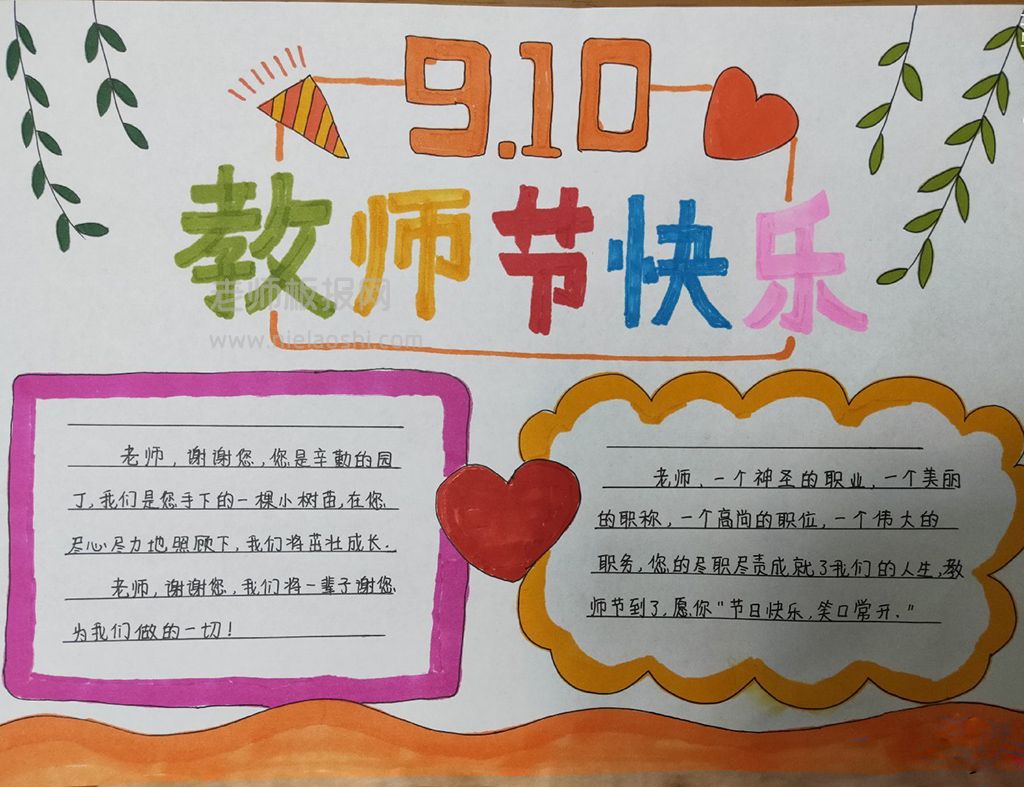 9.10
教师节快乐
老师板报网
www.nielaoshi.com
老师，谢谢您，您是辛勤的园
丁，我们是您手下的一棵小树苗，在您
尽心尽力地照顾下，我们将茁壮成长．
老师，谢谢您，我们将一辈子谢您
为我们做的一切！
老师，一个神圣的职业，一个美丽
的职称，一个高尚的职位，一个伟大的
职务，您的尽职尽责成就了我们的人生，教
师节到了，愿你“节日快乐，笑口常开．”